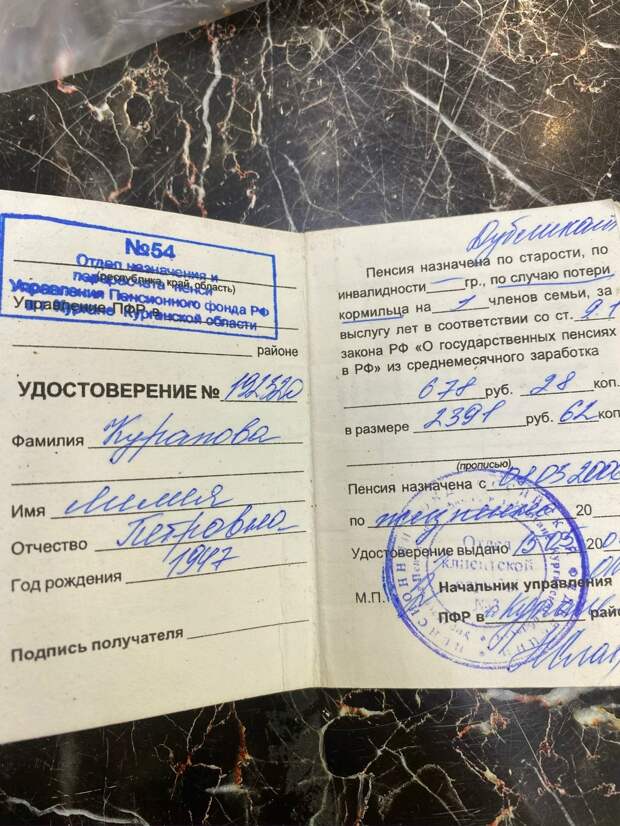 №54
Отдел назначения и
перерасчета пенсий
(республика, край, область)
Управления Пенсионного фонда РФ
Управление ПФР в
по г. Кургану Курганской области
районе
УДОСТОВЕРЕНИЕ № 192320
Фамилия Курапова
Имя Лилия
Отчество Петровна
Год рождения 1947
Подпись получателя
Дубликат
Пенсия назначена по старости, по
инвалидности — гр., по случаю потери
кормильца на 1 членов семьи, за
выслугу лет в соответствии со ст. 9.1
закона РФ «О государственных пенсиях
в РФ» из среднемесячного заработка
678 руб. 28 коп.
в размере 2391 руб. 62 коп
(прописью)
Пенсия назначена с 01.03.200
по пожизненно 20
Удостоверение выдано 15.03. 20
Отдел
клиентской
Начальник управления
М.П.
ПФР в г. Кургане рай